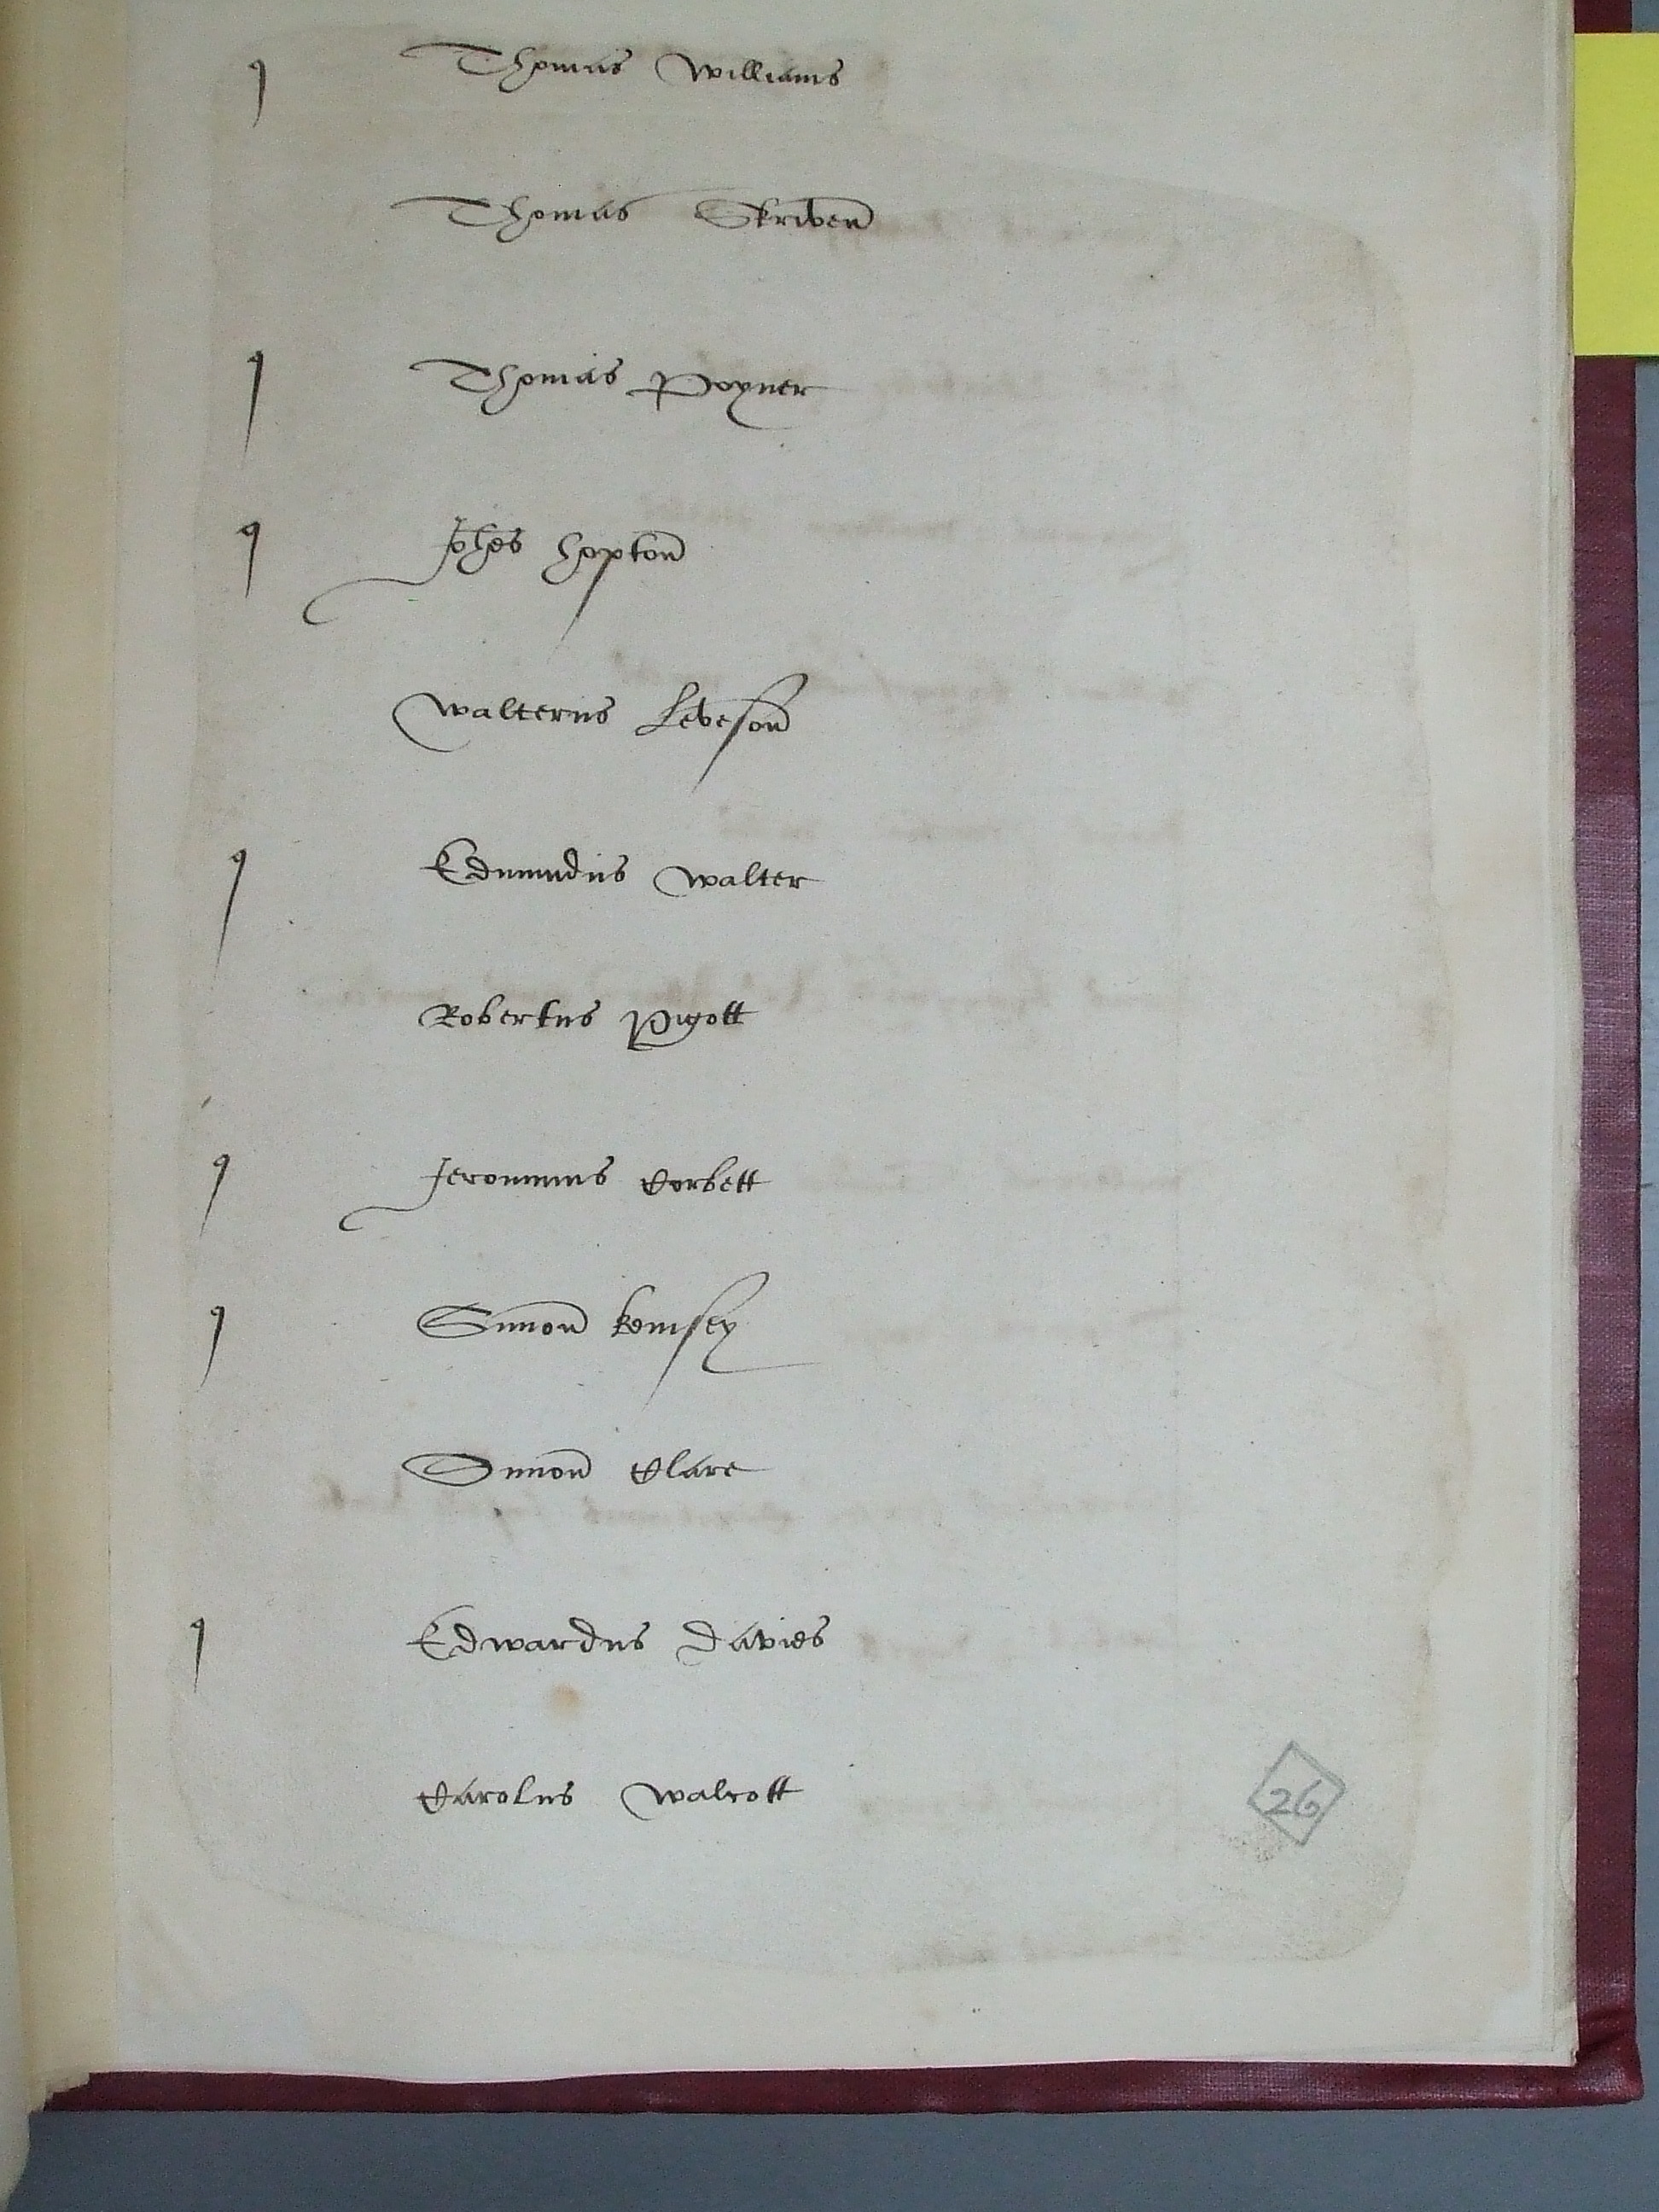 Thomas Williams
Thomas Skriven
Thomas Poyner
Johes hopton
Walterus Leveson
Edmundus Walter
Robertus Pigott
Jeronimus Corbett
Simon kemsey
Simon Clare
Edwardus Davies
Carolus Walcott
26